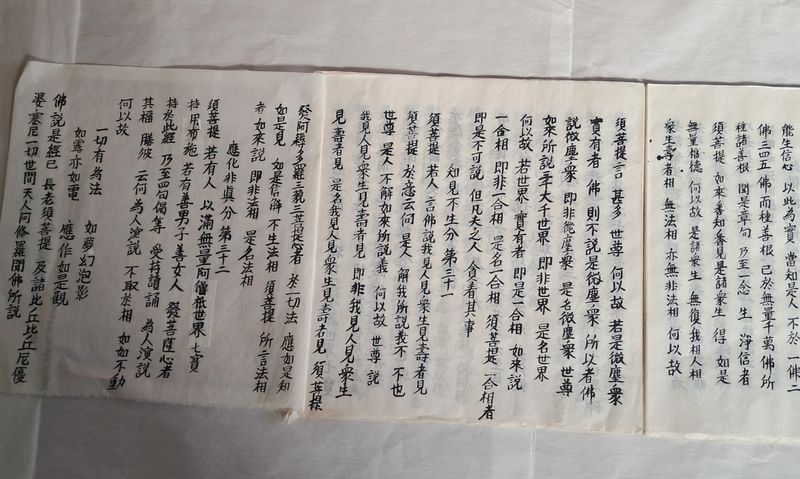 能生信心 以此為寳 當知是人 不於一佛二
佛三四五佛而種善根 已於無量千萬佛所
種諸善根 聞是章句 乃至一念 生 淨信者
須菩提 如來悉知悉見是諸衆生 得 如是
無量福德 何以故 是諸衆生 無復我相人相
衆生壽者相 無法相 亦無非法相 何以故
須菩提言 甚多 世尊 何以故 若是微塵衆
實有者 佛 則不説是微塵衆 所以者佛
説微塵衆 即非微塵衆 是名微塵衆 世尊
如來所説三千大千世界 即非世界 是名世界
何以故 若世界 實有者 即是一合相 如來説
一合相 即非一合相 是名一合相 須菩提 一合相者
即是不可説 但凡夫之人 貪着其事
知見不生分 第三十一
須菩提 若人 言佛説我見人見衆生見壽者見
須菩提 於意云何 是人 解我所説義不 不也
世尊 是人 不解如來所説義 何以故 世尊 説
我見人見衆生見壽者見 即非我見人見衆生
見壽者見 是名我見人見衆生見壽者見 須菩提
發阿耨多羅三藐三菩提心者 於一切法 應如是知
如是見 如是信解 不生法相 須菩提 所言法相
者 如來説 即非法相 是名法相
應化非眞分 第三十二
須菩提 若有人 以滿無量阿僧祇世界七寳
持用布施 若有善男子善女人 發菩薩心者
持於此經 乃至四句偈等 受持讀誦 為人演説
其福 勝彼 云何 為人演説 不取於相 如如不動
何以故
一切有為法 如夢幻泡影
如露亦如電 應作如是觀
佛説是經已 長老須菩提 及諸比丘比丘尼優
婆塞尼一切世間天人阿修羅聞佛所説